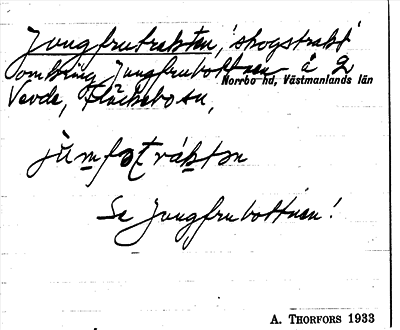 Jungfrutrakten, 'skogstrakt'
omkring Jungfrubottnen å 2
Norrbo hd, Västmanlands län
Vevde, Fläckebo sn,
Se Jungfrubottnen!
A. THORFORS 1933